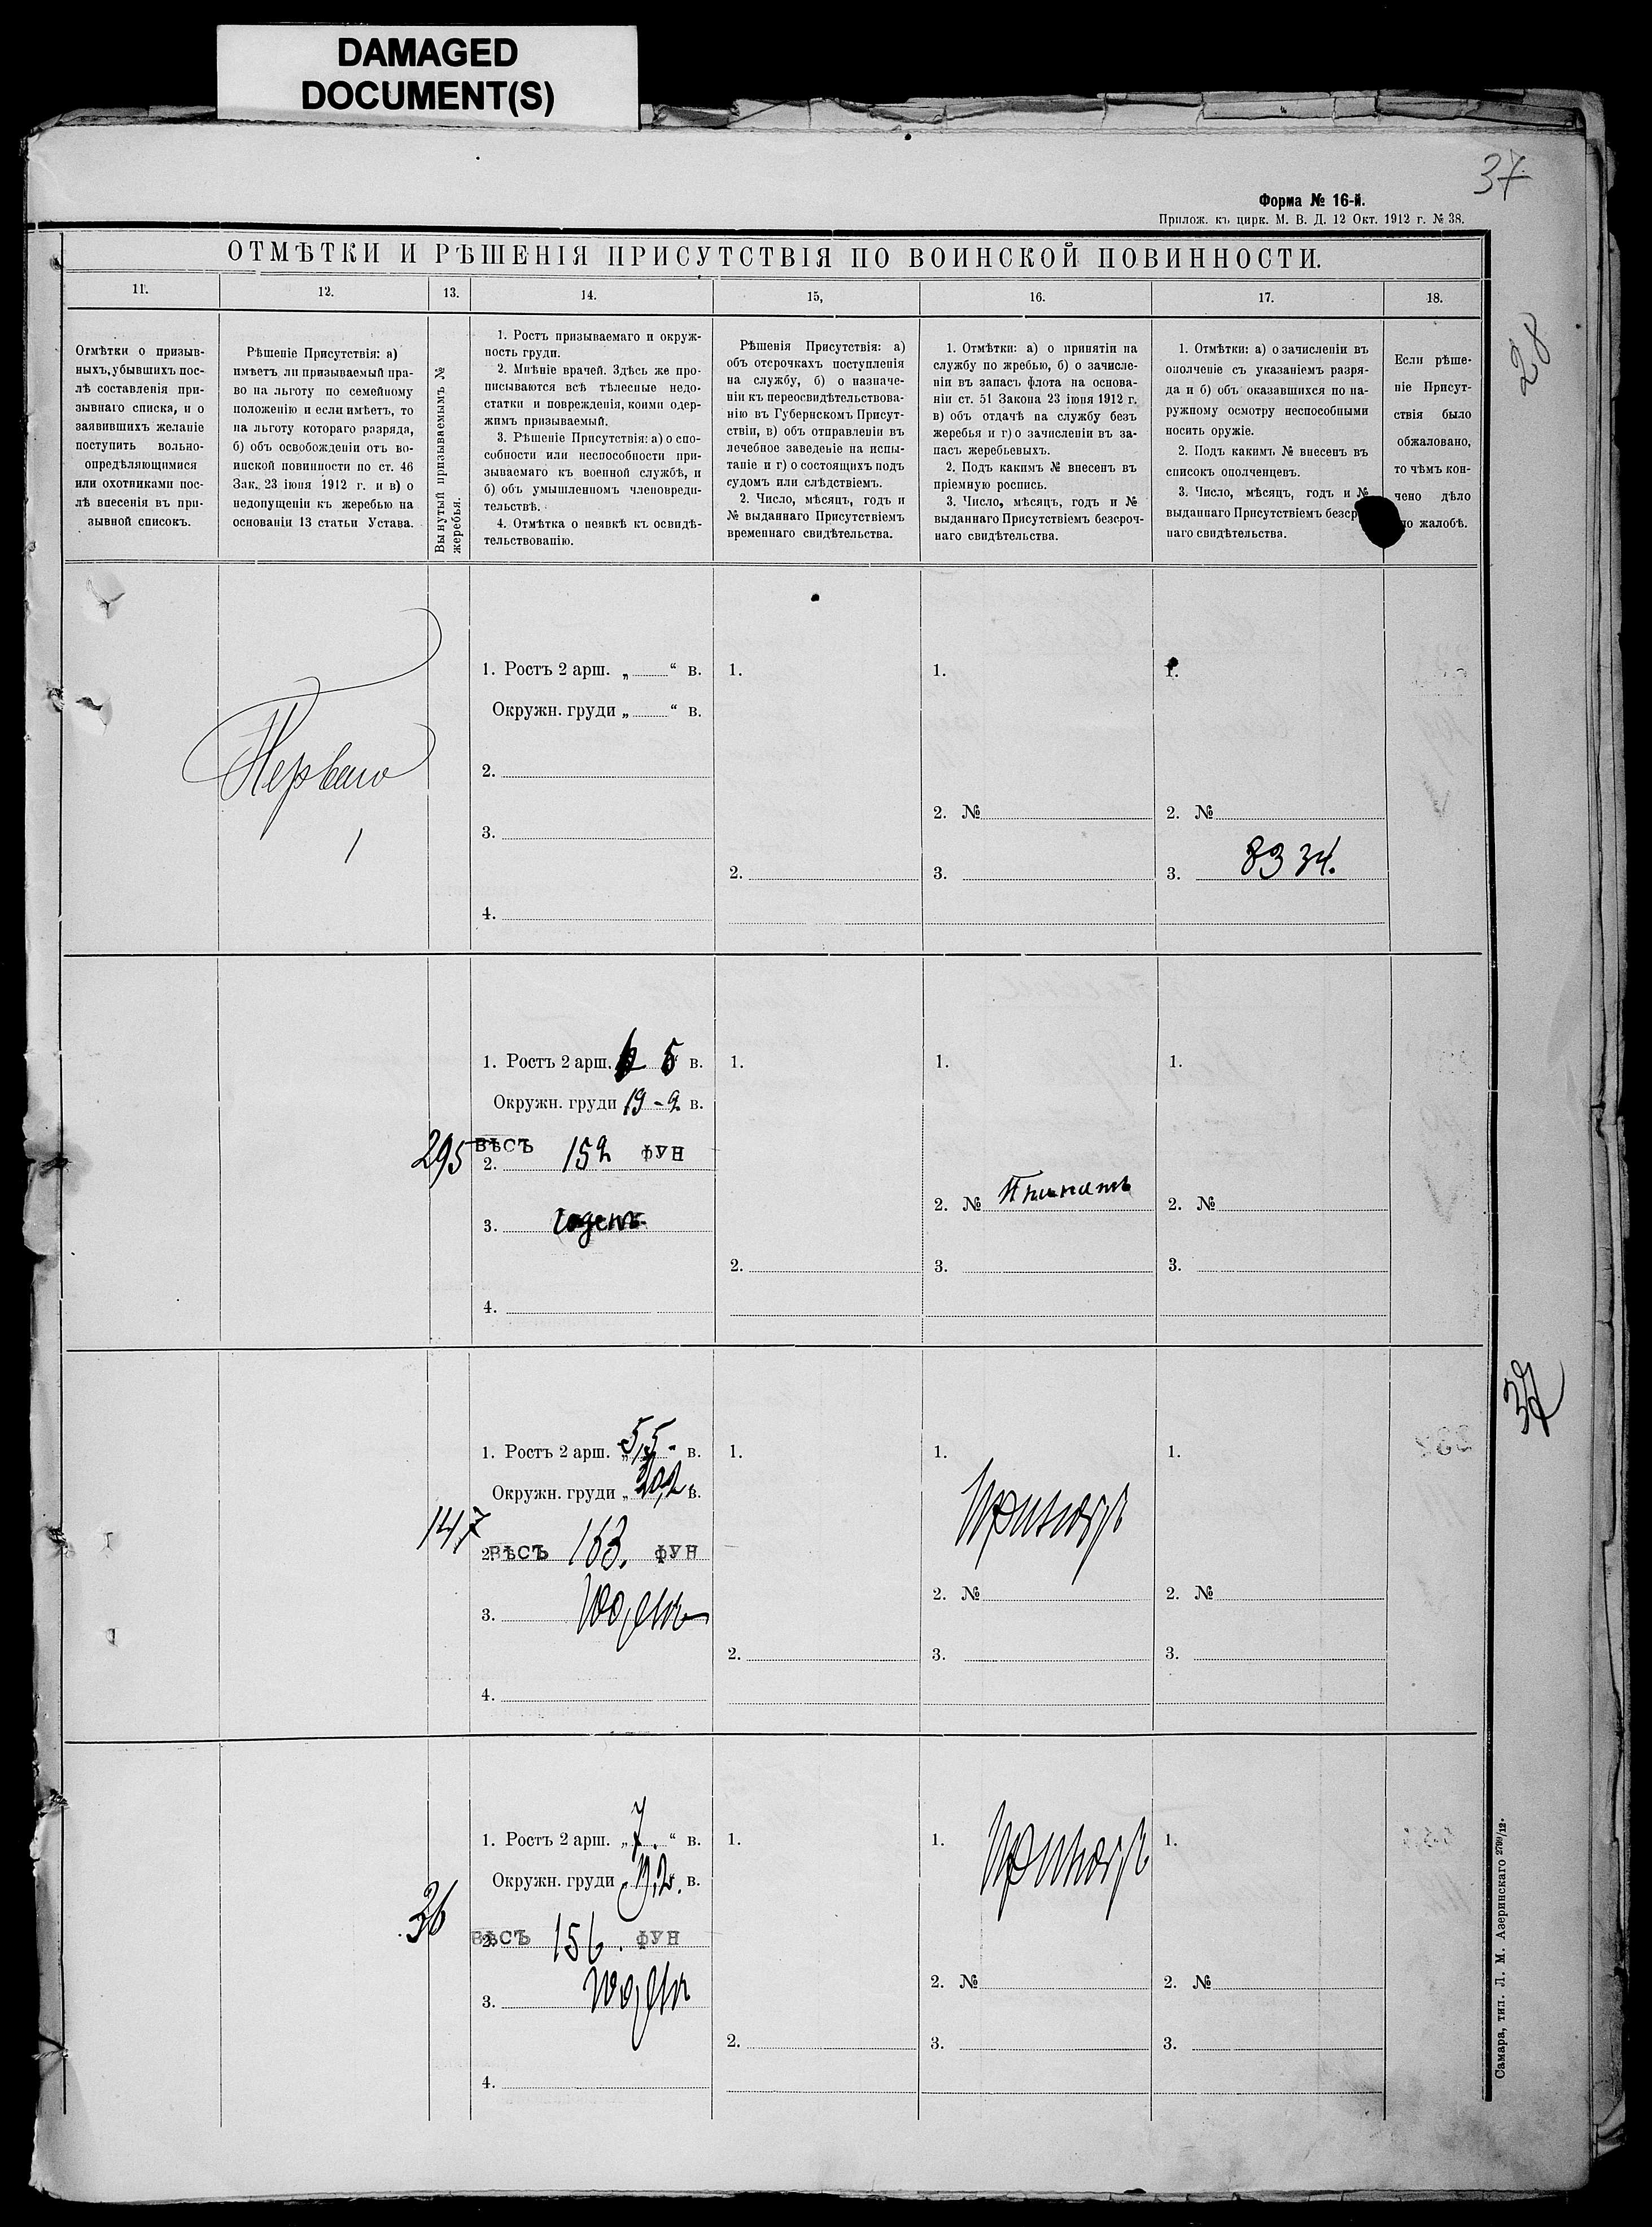 DAMAGED
DOCUMENT(S)
37
Форма № 16-й.
Прилож. къ цирк. М. В. Д. 12 Окт. 1912 г. № 38.
ОТМѢТКИ И РѢШЕНІЯ ПРИСУТСТВІЯ ПО ВОИНСКОЙ ПОВИННОСТИ.
11.
12.
13.
14.
15,
16.
17.
18.
Отмѣтки о призыв-
ныхъ, убывшихъ пос-
лѣ составленія при-
зывнаго списка, и о
заявившихъ желаніе
поступить вольно-
опредѣляющимися
или охотниками пос-
лѣ внесенія въ при-
зывной списокъ.
Рѣшеніе Присутствія: а)
имѣетъ ли призываемый пра-
во на льготу по семейному
положенію и если имѣетъ, то
на льготу котораго разряда,
б) объ освобожденіи отъ во-
инской повинности по ст. 46
Зак. 23 іюня 1912 г. и в) о
недопущеніи къ жеребью на
основаніи 13 статьи Устава.
Вынутый призываемымъ №
жеребья.
1. Ростъ призываемаго и окруж-
ность груди.
2. Мнѣніе врачей. Здѣсь же про-
писываются всѣ тѣлесные недо-
статки и поврежденія, коими одер-
жимъ призываемый.
3. Рѣшеніе Присутствія: а) о спо-
собности или неспособности при-
зываемаго къ военной службѣ, и
б) объ умышленномъ членовреди-
тельствѣ.
4. Отмѣтка о неявкѣ къ освидѣ-
тельствованію.
Рѣшенія Присутствія: а)
объ отсрочкахъ поступленія
на службу, б) о назначе-
ніи къ переосвидѣтельствова-
нію въ Губернскомъ Присут-
ствіи, в) объ отправленіи въ
лечебное заведеніе на испы-
таніе и г) о состоящихъ подъ
судомъ или слѣдствіемъ.
2. Число, мѣсяцъ, годъ и
№ выданнаго Присутствіемъ
временнаго свидѣтельства.
1. Отмѣтки: а) о принятіи на
службу по жребью, б) о зачисле-
ніи въ запасъ флота на основа-
ніи ст. 51 Закона 23 іюня 1912 г.
в) объ отдачѣ на службу безъ
жеребья и г) о зачисленіи въ за-
пасъ жеребьевыхъ.
2. Подъ какимъ № внесенъ въ
пріемную роспись.
3. Число, мѣсяцъ, годъ и №
выданнаго Присутствіемъ безсроч-
наго свидѣтельства.
1. Отмѣтки: а) о зачисленіи въ
ополченіе съ указаніемъ разря-
да и б) объ оказавшихся по на-
ружному осмотру неспособными
носить оружіе.
2. Подъ какимъ № внесенъ въ
списокъ ополченцевъ.
3. Число, мѣсяцъ, годъ и №
выданнаго Присутствіемъ безср
наго свидѣтельства.
Если рѣше-
ніе Присут-
ствія было
обжаловано,
то чѣмъ кон-
чено дѣло
по жалобѣ.
28
Перваго
1
1. Ростъ 2 арш. „ “ в.
Окружн. груди „ “ в.
2.
3.
4.
1.
2.
1.
2. №
3.
1.
2. №
3. 8334.
295
1. Ростъ 2 арш. 5 в.
Окружн. груди 19-2 в.
ВѢСЪ
2. 152 ФУН
3. годенъ
4.
1.
2.
1.
2. № Принятъ
3.
1.
2. №
3.
37
147
1. Ростъ 2 арш. „5,5 в.
Окружн. груди „20,2 в.
2. ВѢСЪ 153. ФУН
3. Годенъ
4.
1.
2.
1. Принятъ
2. №
3.
1.
2. №
3.
36
1. Ростъ 2 арш. „7. “ в.
Окружн. груди „19,2. в.
2. ВѢСЪ 156. ФУН
3. Годенъ
4.
1.
2.
1. Принятъ
2. №
3.
1.
2. №
3.
Самара, тип. Л. М. Азеринскаго 2799/12.